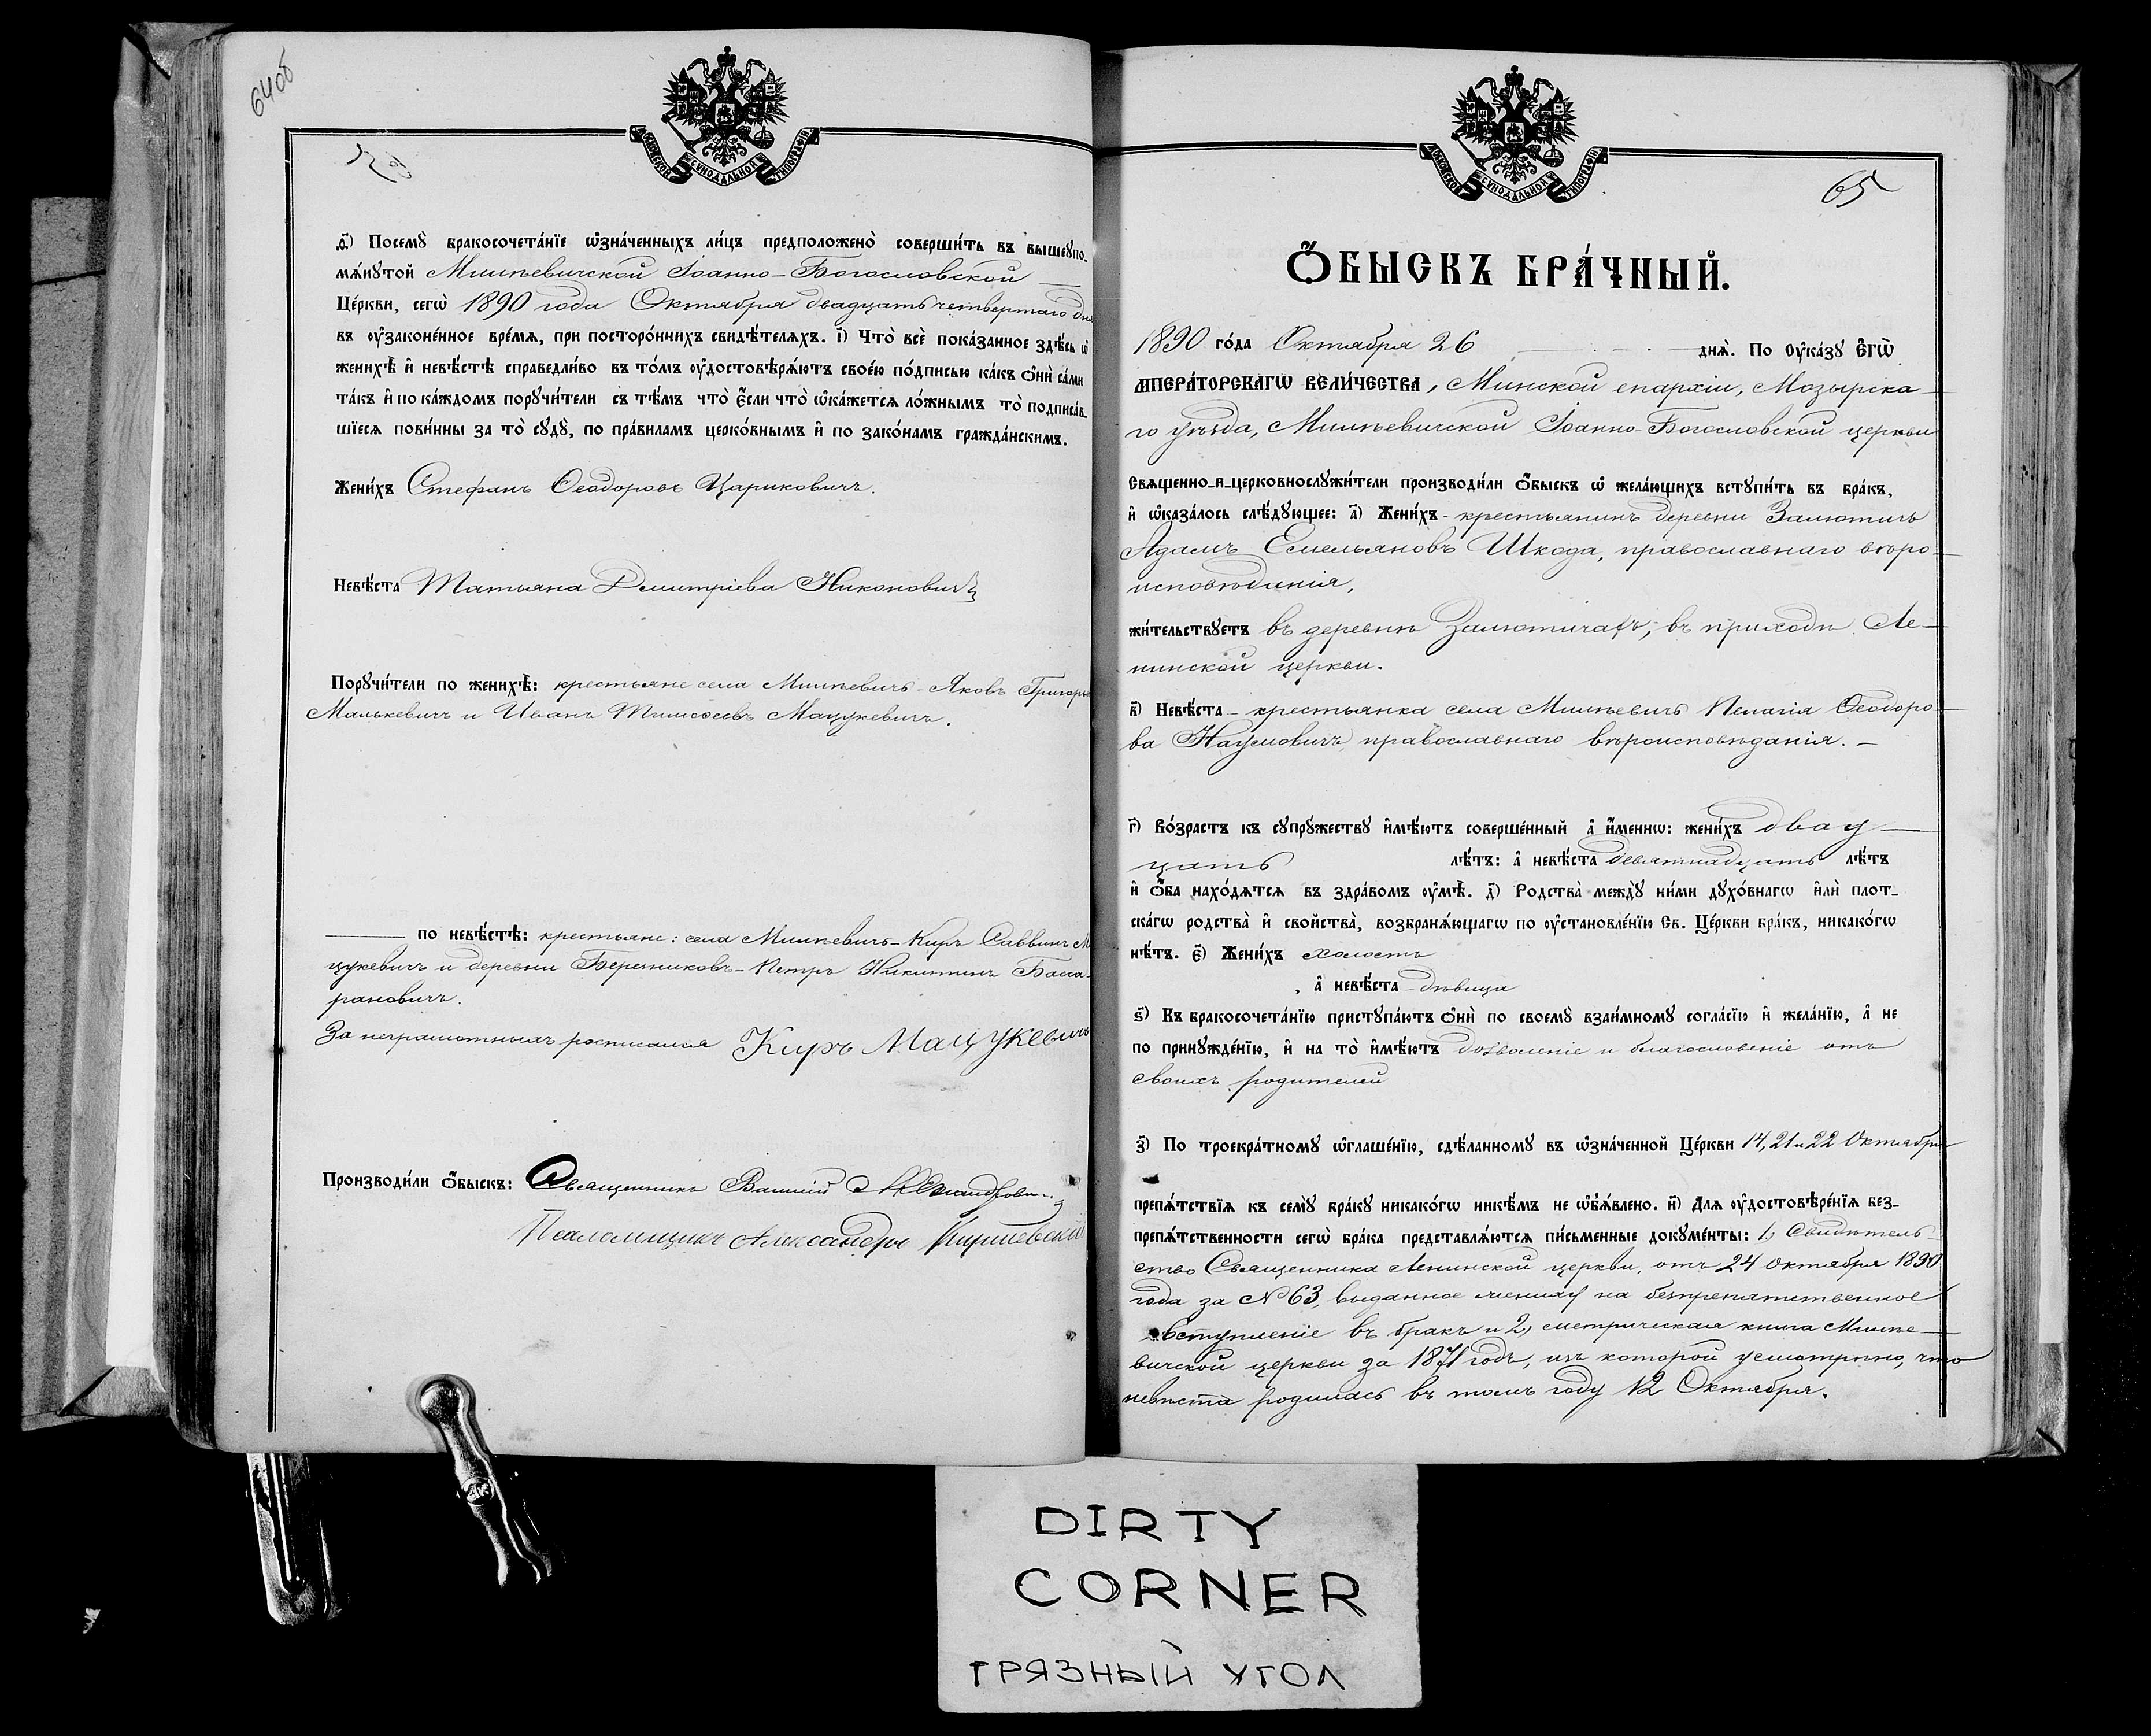 64об
МОСКОВСКОЙ СУНОДАЛЬНОЙ ТИПОГРАФІИ
ѳ҃) Посемꙋ бракосочета́нїе ѡ҆зна́ченныхъ ли́цъ предположено̀ соверши́ть въ вышеꙋпо-
мѧ́нꙋтой Милевичской Іоанно-Богословской
Це́ркви, сегѡ̀ 1890 года Октября двадцать четвертаго дня
въ ᲂу҆законе́нное вре́мѧ, при посторо́ннихъ свидѣ́телѧхъ. і҃) Что̀ всѐ пока́занное здѣ́сь ѡ҆
женихѣ̀ и҆ невѣ́стѣ справедли́во въ то́мъ ᲂу҆достовѣрѧ́ютъ свое́ю по́дписью ка́къ ѻ҆нѝ са́ми
та́къ и҆ по ка́ждомъ порꙋчи́тели съ тѣ́мъ что̀ є҆́сли что̀ ѡ҆ка́жетсѧ ло́жнымъ то̀ подписа́в-
шїесѧ пови́нны за то̀ сꙋдꙋ̀, по пра́виламъ церко́внымъ и҆ по зако́намъ гражда́нскимъ.
Жени́хъ Стефанъ Ѳеодоровъ Царикович.
Невѣ́ста Татьяна Димитріева Никонович
Порꙋчи́тели по женихѣ̀: крестьяне села Милевичъ - Яковъ Григорьев
Малькевичъ и Иванъ Тимоѳеевъ Мацукевичъ.
по невѣ́стѣ: крестьяне: села Милевичъ - Киръ Саввинъ Ма
цукевичъ и деревни Березниковъ - Петръ Никитинъ Баса-
рановичъ.
За неграмотныхъ росписался Киръ Мацукевичъ
Производи́ли ѻ҆́быскъ: Священникъ Василій
Псаломщикъ Александръ
65
МОСКОВСКОЙ СУНОДАЛЬНОЙ ТИПОГРАФІИ
Ѻ҆́БЫСКЪ БРА́ЧНЫЙ.
1890 го́да Октября 26 днѧ̀. По ᲂу҆ка́зꙋ Є҆гѡ̀
мпера́торскагѡ вели́чества, Минской епархіи, Мозырска-
го уѣзда, Милевичской Іоанно-Богословской церкви
Свѧщенно-и-церковнослꙋжи́тели производи́ли ѻ҆́быскъ ѡ҆ жела́ющихъ встꙋпи́ть въ бра́къ,
и҆ ѡ҆каза́лось слѣ́дꙋющее: а҃) Жени́хъ - крестьянинъ деревни Залютичъ
Адамъ Емельяновъ Шкода, православнаго вѣро-
исповѣданія,
жи́тельствꙋетъ въ деревнѣ Залютичахъ, въ приходѣ Ле-
нинской церкви.
в҃) Невѣ́ста - крестьянка села Милевичъ Пелагія Ѳеодоро-
ва Наумовичъ православнаго вѣроисповѣданія. -
г҃) Во́зрастъ къ сꙋпрꙋжествꙋ и҆мѣ́ютъ соверше́нный а҆ и҆́меннѡ: жени́хъ двад-
цать лѣ́тъ: а҆ невѣ́ста девятнадцать лѣ́тъ
и҆ ѻ҆́ба нахо́дѧтсѧ въ здра́вомъ ᲂу҆мѣ̀. д҃) Родства̀ междꙋ̀ ни́ми дꙋхо́внагѡ и҆лѝ плот-
ска́гѡ родства̀ и҆ свойства̀, возбранѧ́ющагѡ по ᲂу҆становле́нїю Св. Це́ркви бра́къ, никако́гѡ
нѣ́тъ. є҃) Жени́хъ холостъ
, а҆ невѣ́ста дѣвица
ѕ҃) Къ бракосочета́нїю пристꙋпа́ютъ ѻ҆нѝ по своемꙋ̀ взаи́мномꙋ согла́сїю и҆ жела́нїю, а҆ не
по принꙋжде́нїю, и҆ на то̀ и҆мѣ́ютъ дозволеніе и благословеніе отъ
своихъ родителей
з҃) По троекра́тномꙋ ѡ҆глаше́нїю, сдѣ́ланномꙋ въ ѡ҆зна́ченной Це́ркви 14, 21 и 22 Октября
препѧ́тствїѧ къ семꙋ̀ бра́кꙋ никако́гѡ никѣ́мъ не ѡ҆б̾ѧ́влено. и҃) Длѧ ᲂу҆достовѣре́нїѧ без-
препѧ́тственности сегѡ̀ бра́ка представлѧ́ютсѧ пи́сьменные докꙋме́нты: 1, Свидѣтель-
ство Священника Ленинской церкви, отъ 24 Октября 1890
года за № 63, выданное жениху на безпрепятственное
вступленіе въ бракъ и 2, метрическая книга Милe-
вичской церкви за 1871 годъ, изъ которой усмотрѣно, что
невѣста родилась въ томъ году 12 Октября.
DIRTY
CORNER
ГРЯЗНЫЙ УГОЛ